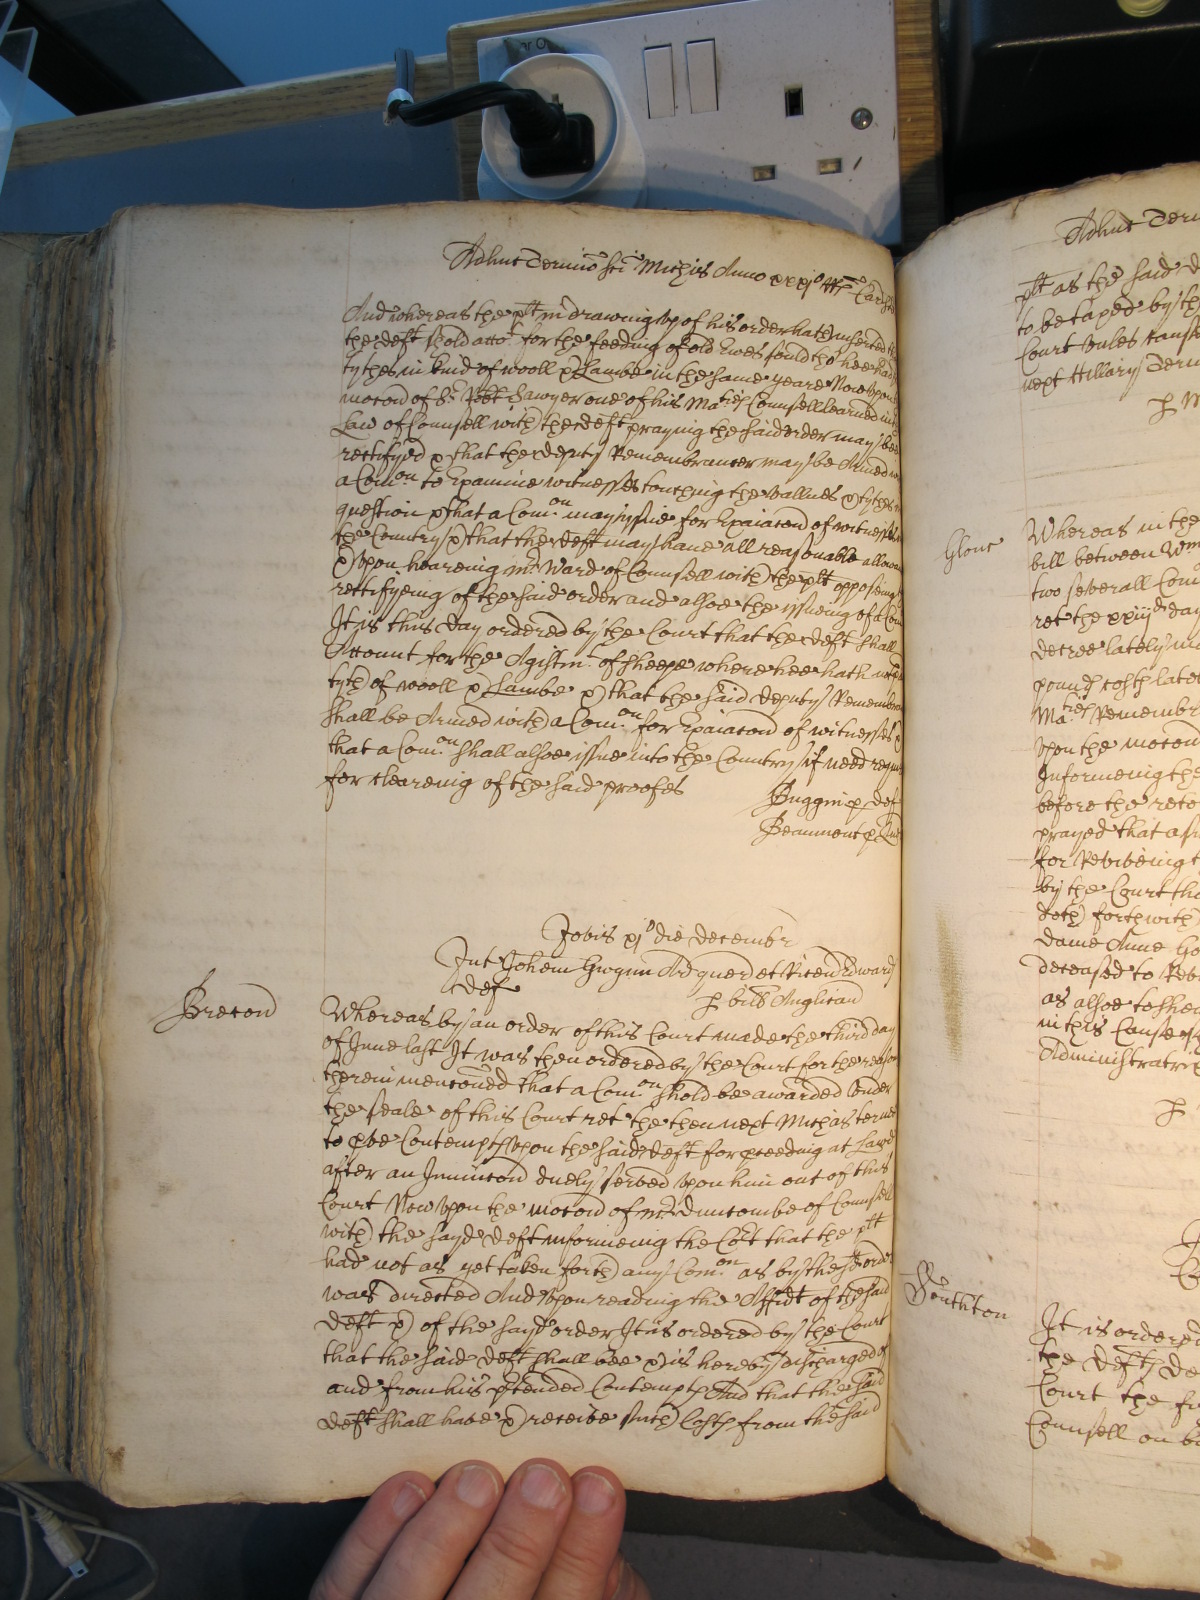 Adhuc Termio sci Michis Anno xxxj
And whereas the plt in drawing up of his order hath inserted
the deft shold acco for the feeding of old Ewes sould tho hee had
tythes in kind of wooll & Lambe in the same yeare Now upon
motion of Sr Robt Sawyer one of his Maties Counsell learned in
Law of Counsell with the deft praying the said order may bee
rectifyed & that the deputy Remembrancer may be Armed
a Comon to Examine witnesses touching the vallues & tythes
question & that a Comon may issue for Exaiacon of witnesses
the Country & that the deft may have all reasonable allowan
& upon hearing mr Ward of Counsell with the plt opposing
rectifyeing of the said order and alsoe the issueing of a Com
It is this day ordered by the Court that the deft shall
Account for the Agistmt of sheepe where hee hath
tyth of wooll & Lambe & that the said deputy Remembra
shall be Armed with a Comon for Exaiacon of witnesses &
that a Comon shall alsoe issue into the Country if need requi
for clearenig of the said proofes
Buggin p def
Beaumont p
Jovis xjo die Decembr
Int Johem Gwynn Ar quer et Ricem Edwards
def
p bill Anglican
Brecon
Whereas by an order of this Court made the third day
of June last It was then ordered by the Court for the reason
therein mentoned that a Comon shold be awarded under
the seale of this Court ret the then next Michas terme
to pve Contempts upon the said deft for pceeding at Lawe
after an Inniuncon duely served upon him out of this
Court Now upon the motion of mr Duncombe of Counsell
with the sayd deft informeing the Cort that the plt
had not as yet taken forth any Comon as by the sd order
was directed And upon reading the Affidt of the said
deft & of the sayd order It is ordered by the Court
that the said deft shall bee & is hereby discharged of
and from his ptended Contempts And that the said
deft shall have & receive such Costs from the said
Adhuc Term
plt as the said d
to be taxed by th
Court unles cause
next Hillary Term
p M
Glouc
Whereas in the
bill between Wm
two severall Com
ret the xxiijd day
decree lately m
pounds costs late
Maties Remembr
upon the motion
Informeing the
before the
prayed that a
for Reviveing t
by the Court tha
doth forthwith
Dame Anne Go
deceased to Rev
as alsoe to shew
in this Cause
Administratri
p
Southton
It is ordered
the defts de
Court the fi
Counsell on b